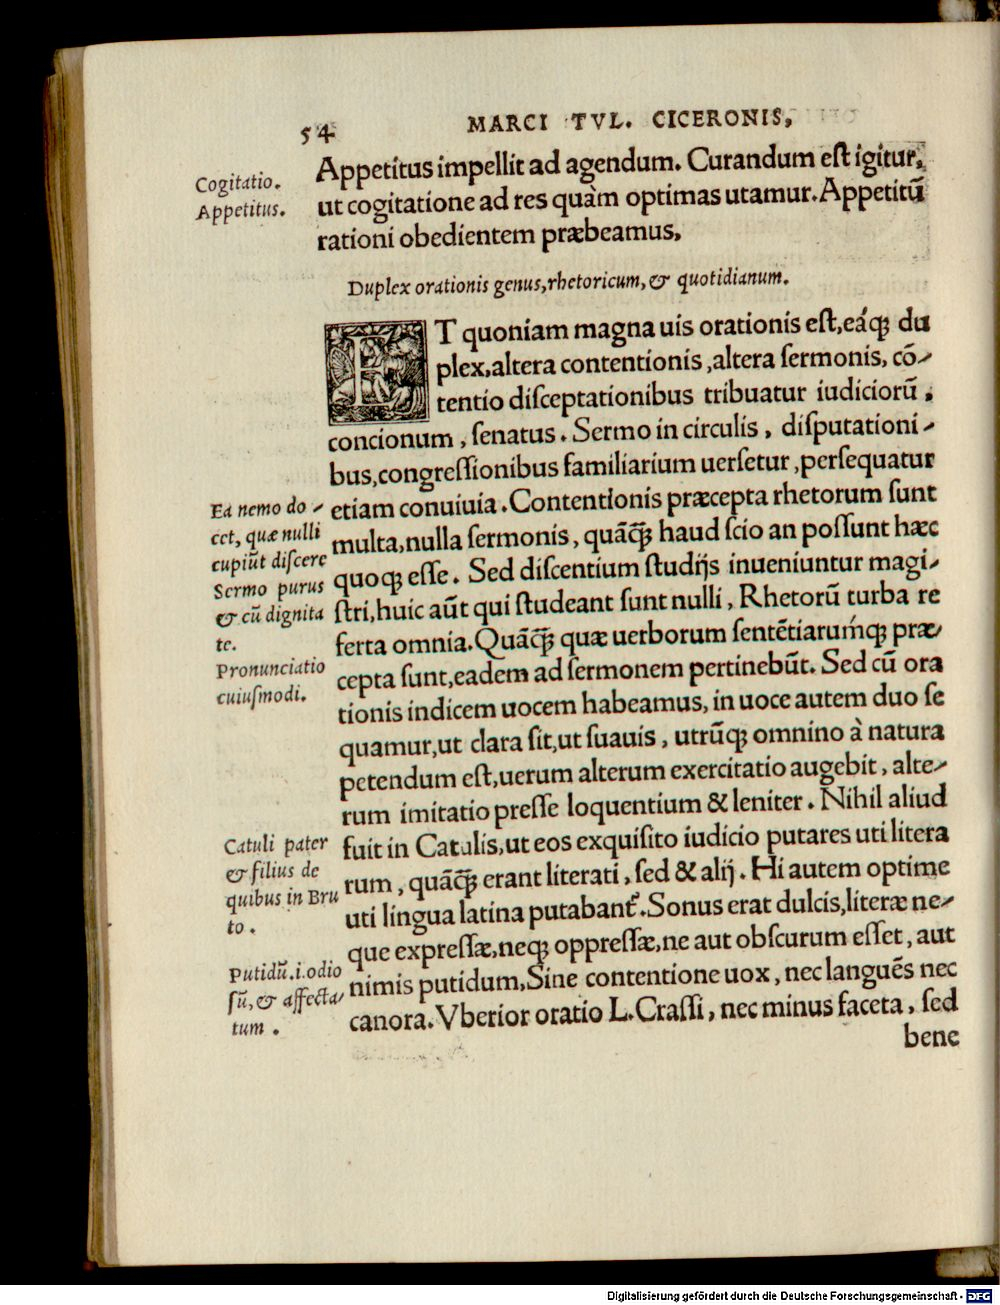 54 MARCI TVL. CICERONIS,
Cogitatio.
Appetitus.
Appetitus impellit ad agendum. Curandum eſt igitur,
ut cogitatione ad res quàm optimas utamur. Appetitū
rationi obedientem præbeamus,
Duplex orationis genus, rhetoricum, & quotidianum.
ET quoniam magna uis orationis eſt, eáq; du
plex, altera contentionis, altera ſermonis, cō-
tentio diſceptationibus tribuatur iudiciorū,
concionum, ſenatus. Sermo in circulis, diſputationi-
bus, congreſſionibus familiarium uerſetur, perſequatur
etiam conuiuia. Contentionis præcepta rhetorum ſunt
multa, nulla ſermonis, quāq̃ haud ſcio an poſſunt hæc
quoq; eſſe. Sed diſcentium ſtudijs inueniuntur magi-
ſtri, huic aūt qui ſtudeant ſunt nulli, Rhetorū turba re
ferta omnia. Quāq̃ quæ uerborum ſentētiarumq́; præ-
cepta ſunt, eadem ad ſermonem pertinebūt. Sed cū ora
tionis indicem uocem habeamus, in uoce autem duo ſe
quamur, ut clara ſit, ut ſuauis, utrūq; omnino à natura
petendum eſt, uerum alterum exercitatio augebit, alte-
rum imitatio preſſe loquentium & leniter. Nihil aliud
fuit in Catulis, ut eos exquiſito iudicio putares uti litera
rum, quāq̃ erant literati, ſed & alij. Hi autem optime
uti lingua latina putabant᷑. Sonus erat dulcis, literæ ne-
que expreſſæ, neq; oppreſſæ, ne aut obſcurum eſſet, aut
nimis putidum, Sine contentione uox, nec languēs nec
canora. Vberior oratio L. Craſſi, nec minus faceta, ſed
bene
Ea nemo do-
cet, quæ nulli
cupiūt diſcere
Sermo purus
& cū dignita
te.
Pronunciatio
cuiuſmodi.
Catuli pater
& filius de
quibus in Bru
to.
Putidū .i. odio
ſū, & affecta-
tum.
Digitalisierung gefördert durch die Deutsche Forschungsgemeinschaft - DFG